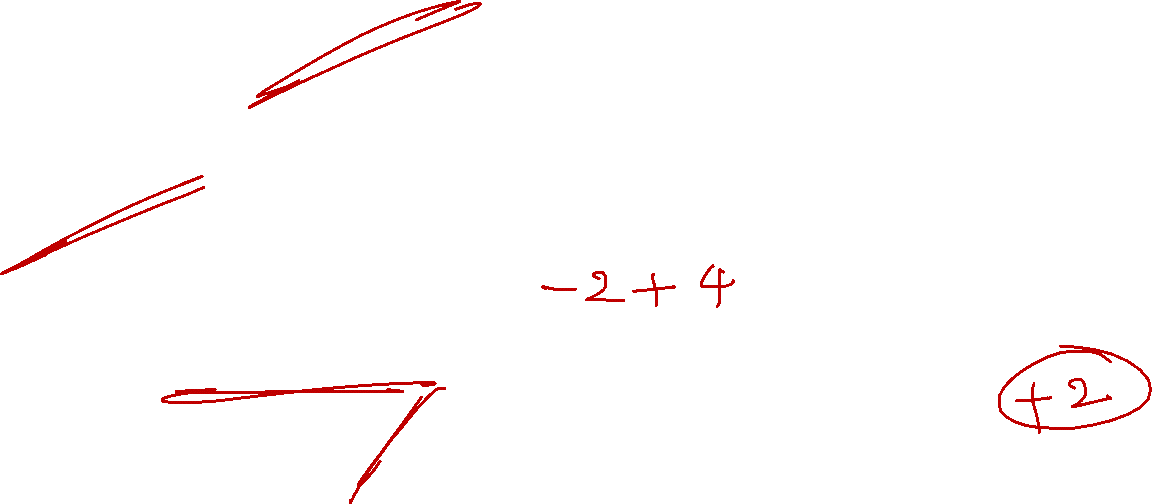 -2+4
+2